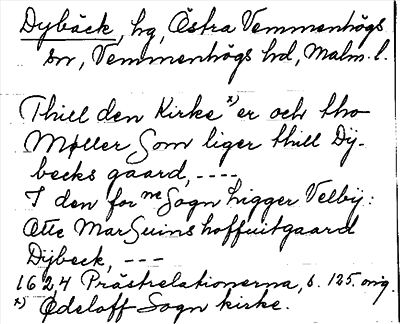 Dybäck, hg, Östra Vemmenhögs
sn, Vemmenhögs hd, Malm. l.
Thill den Kirke x) er och tho
Møller Som liger thill Dÿ-
becks gaard, ----
I den for ne Sogn Ligger Velbÿ:
Otte MarSuins hoffuitgaard
Dÿbeck, ---
1624 Prästrelationerna, s. 125. orig.
x) Ødeloff Sogn kirke.